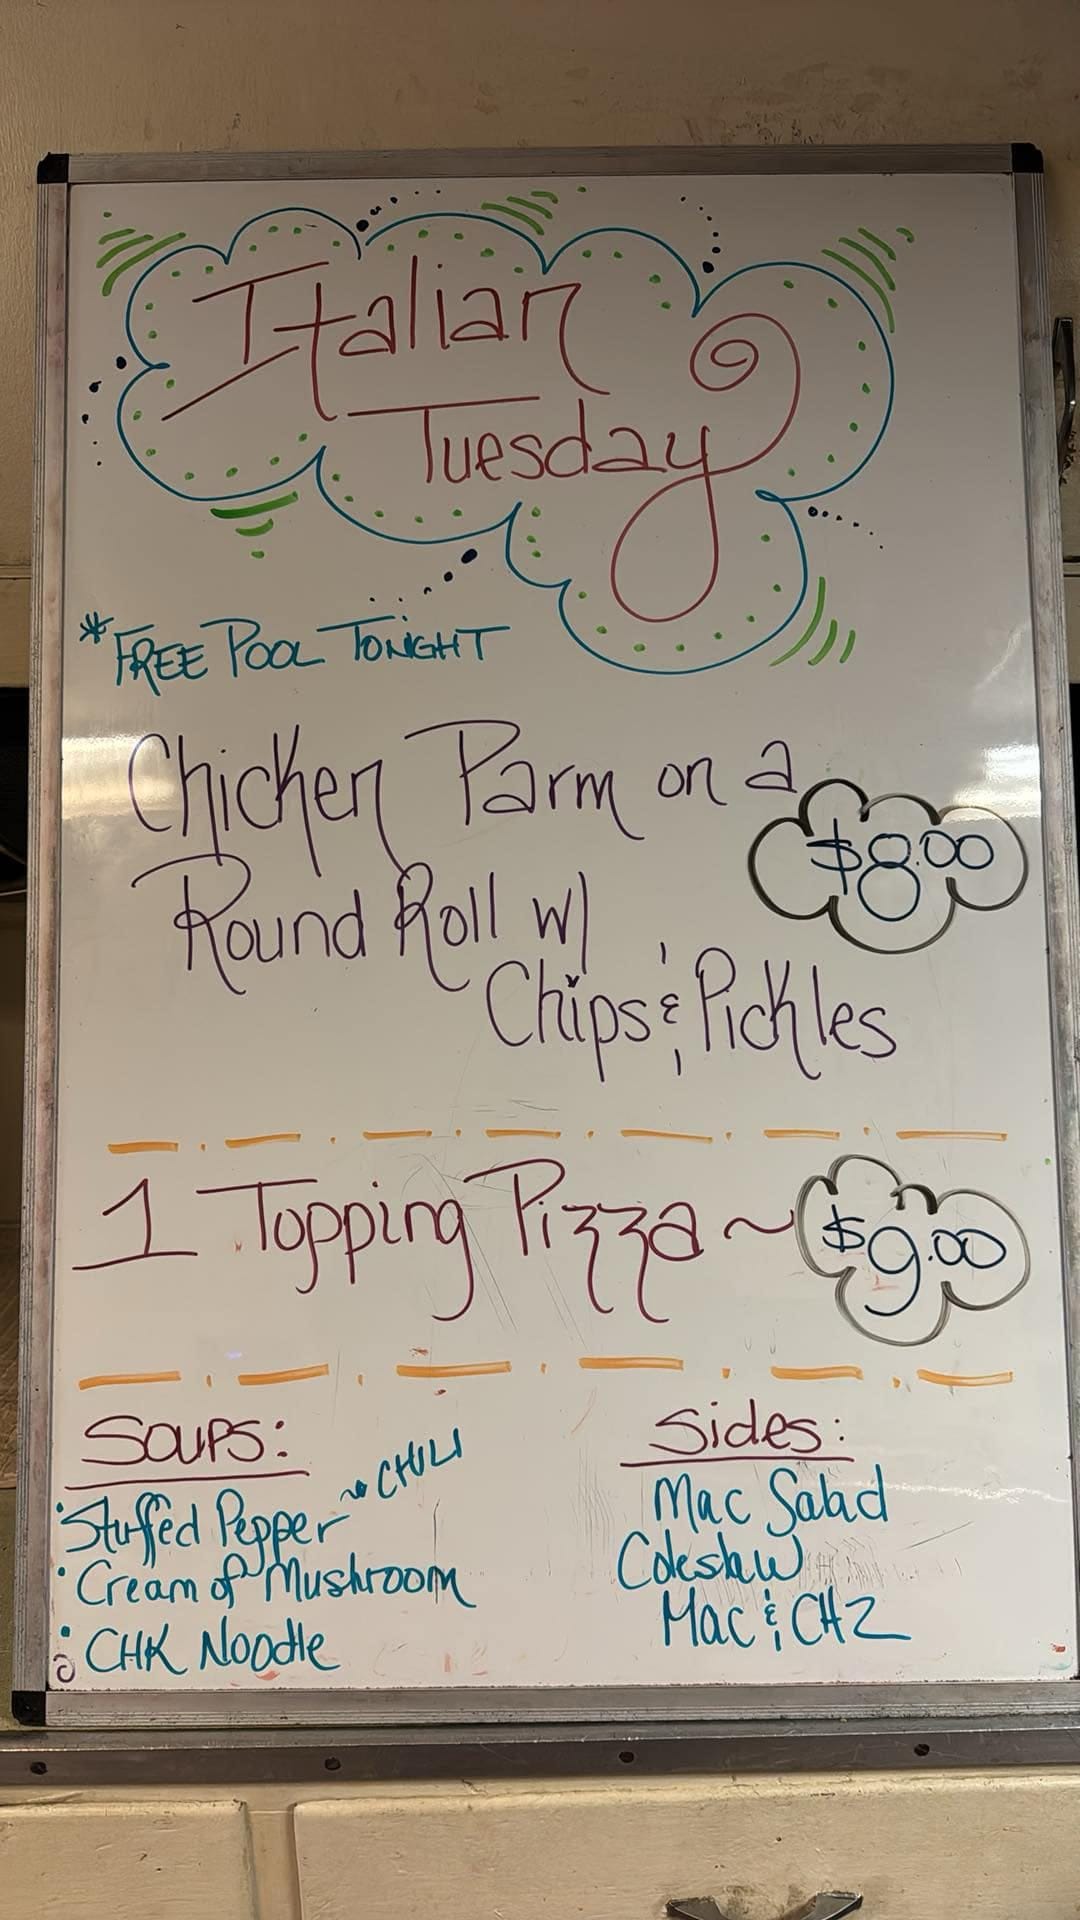 Italian
Tuesday
*FREE POOL TONIGHT
Chicken Parm on a
$8.00
Round Roll w/
Chips & Pickles
1 Topping Pizza ~ $9.00
Soups:
• Stuffed Pepper ~ CHILI
• Cream of Mushroom
• CHK Noodle
Sides:
Mac Salad
Coleslaw
Mac & CHZ